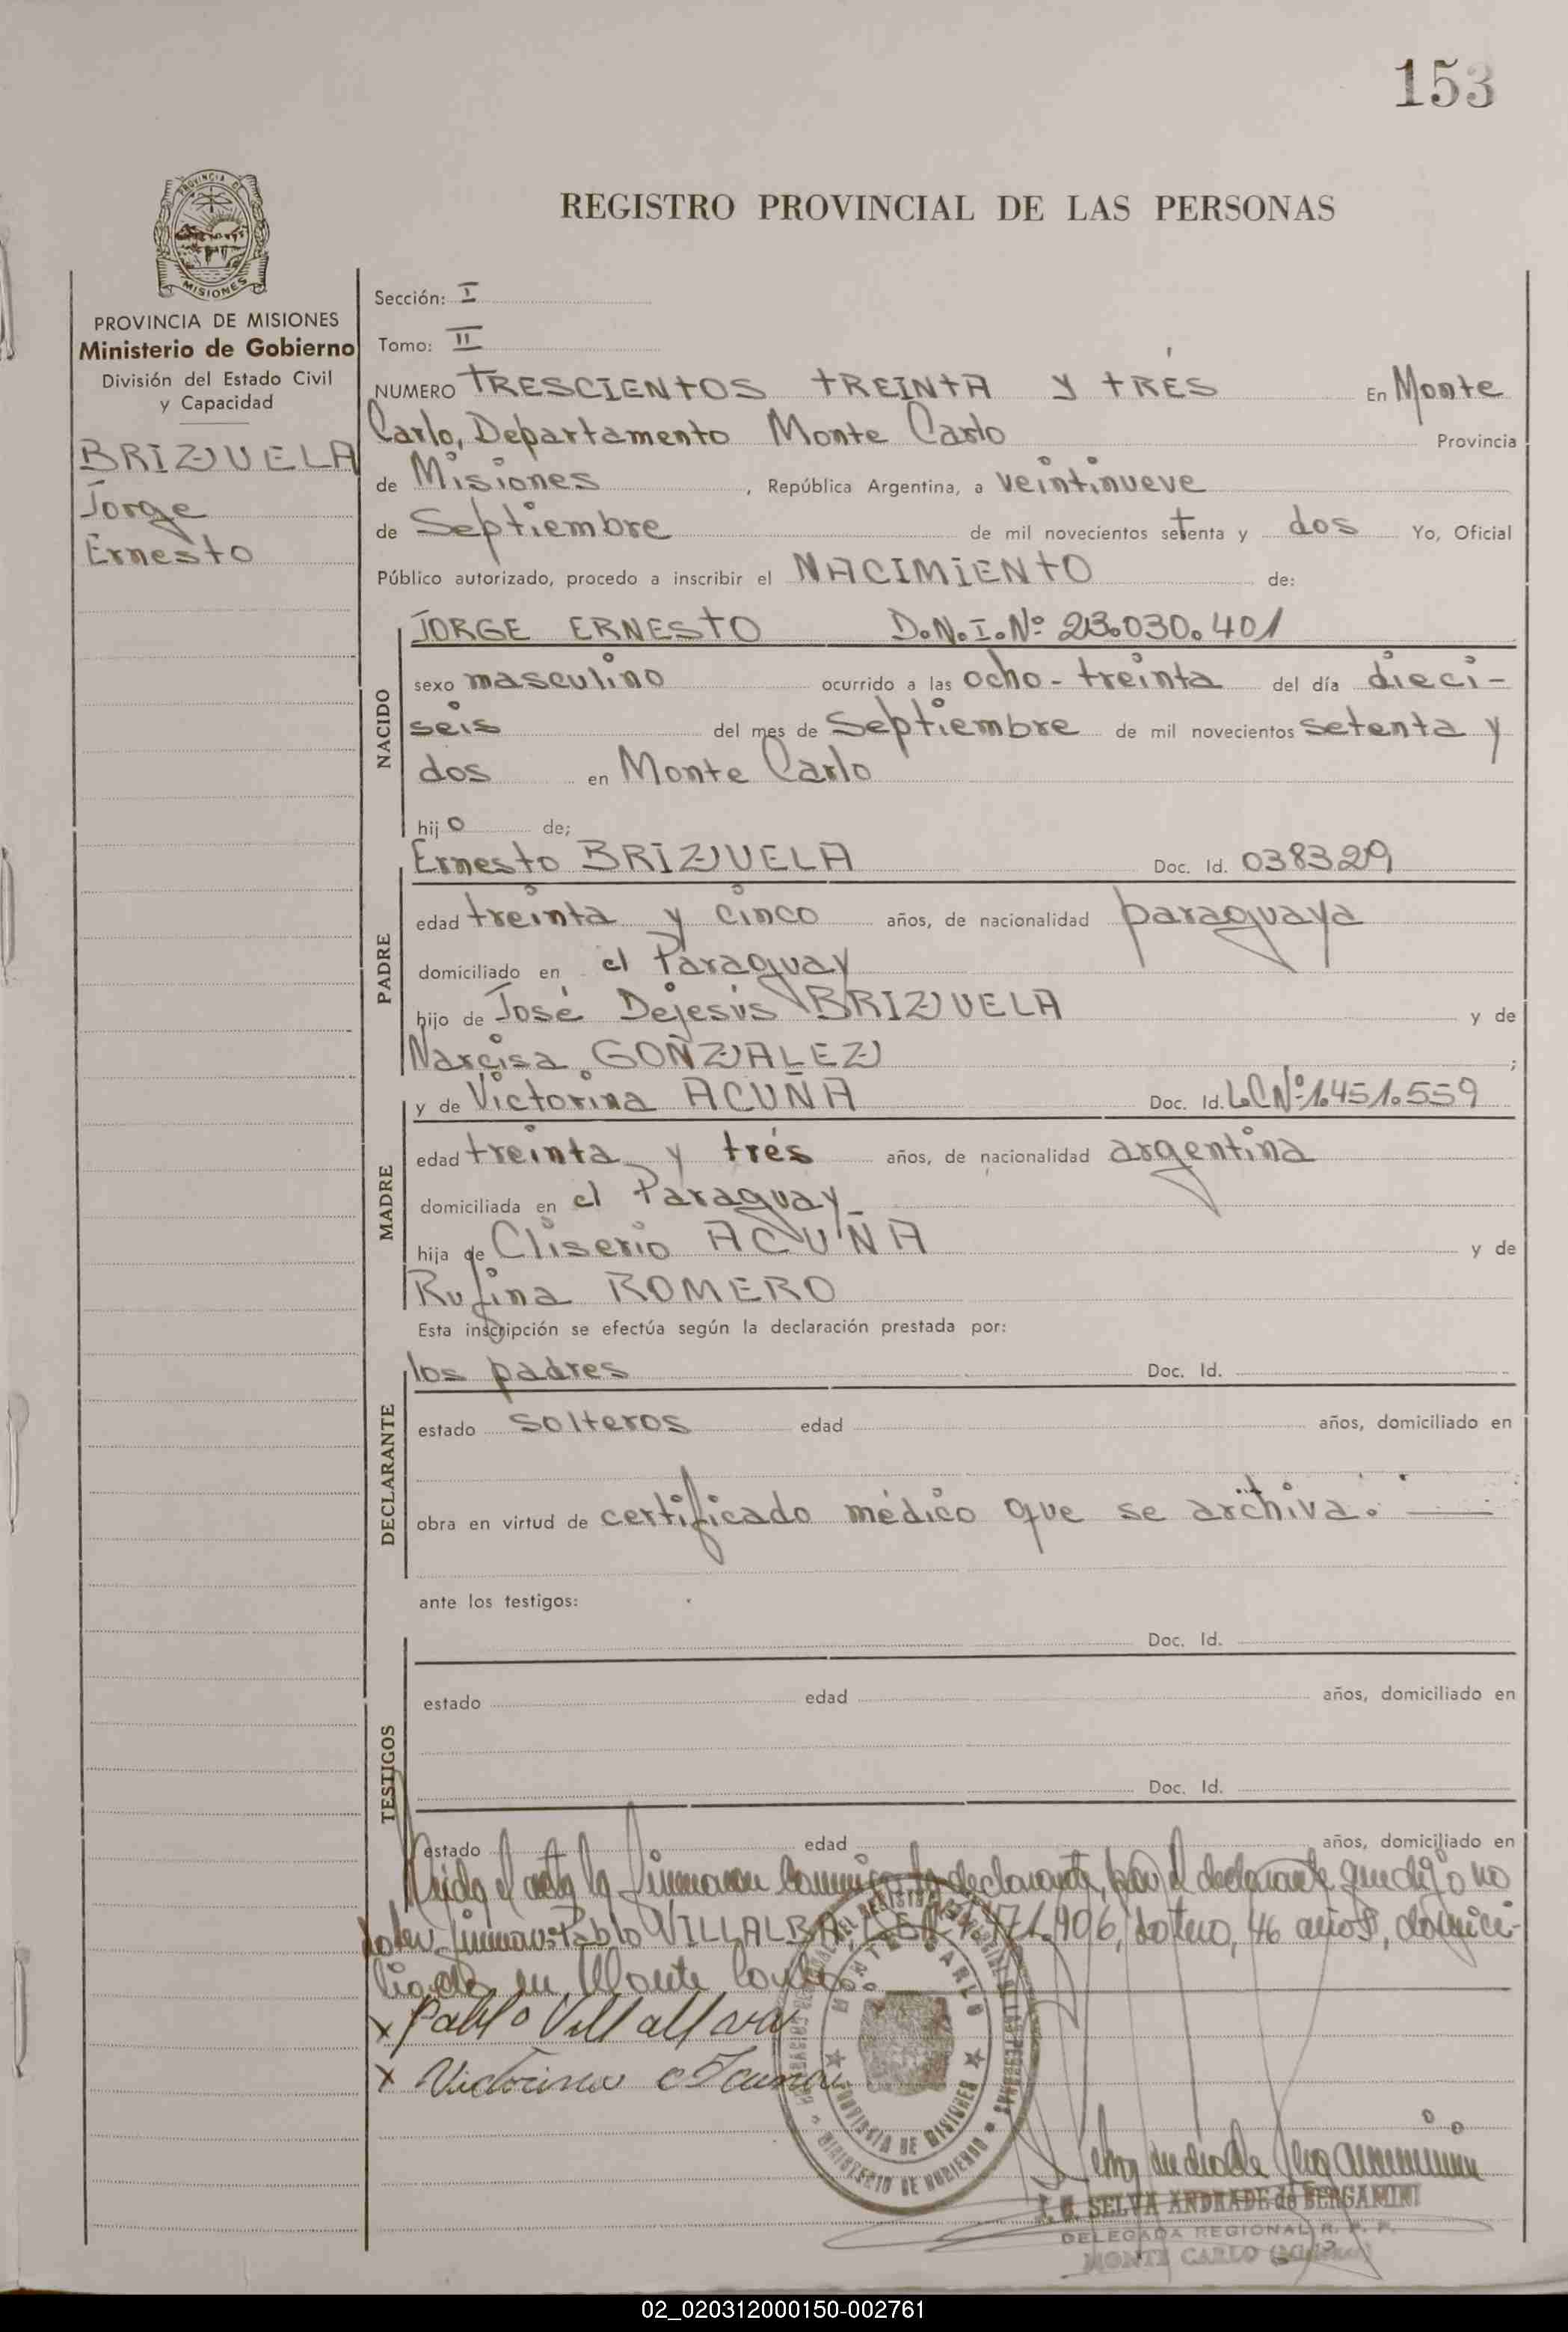 153
PROVINCIA DE
MISIONES
REGISTRO PROVINCIAL DE LAS PERSONAS
PROVINCIA DE MISIONES
Ministerio de Gobierno
División del Estado Civil
y Capacidad
BRIZUELA
Jorge
Ernesto
Sección: I
Tomo: II
NUMERO TRESCIENTOS TREINTA Y TRÉS En Monte
Carlo, Departamento Monte Carlo Provincia
de Misiones, República Argentina, a veintinueve
de Septiembre de mil novecientos setenta y dos Yo, Oficial
Público autorizado, procedo a inscribir el NACIMIENTO de:
NACIDO
JORGE ERNESTO D.N.I.Nº 23.030.401
sexo masculino ocurrido a las ocho-treinta del día dieci-
seis del mes de Septiembre de mil novecientos setenta y
dos en Monte Carlo
hijo de;
PADRE
Ernesto BRIZUELA Doc. Id. 038329
edad treinta y cinco años, de nacionalidad paraguaya
domiciliado en el Paraguay
hijo de José Dejesús BRIZUELA y de
Narcisa GONZALEZ ;
MADRE
y de Victorina ACUÑA Doc. Id. L.C.Nº 1.451.559
edad treinta y trés años, de nacionalidad argentina
domiciliada en el Paraguay
hija de Cliserio ACUÑA y de
Rufina ROMERO
Esta inscripción se efectúa según la declaración prestada por:
DECLARANTE
los padres Doc. Id.
estado solteros edad años, domiciliado en
obra en virtud de certificado médico que se archiva.
ante los testigos:
TESTIGOS
Doc. Id.
estado edad años, domiciliado en
Doc. Id.
estado edad años, domiciliado en
Leída el acta la firmaron conmigo la declarante, por el declarante que dijo no
saber firmar: Pablo VILLALBA, 471.906, soltero, 46 años, domici-
liado en Monte Carlo
x Pablo Villallva
x Victorina Acuna
MONTE CARLO
PROVINCIA DE MISIONES
MINISTERIO DE GOBIERNO
SELVA ANDRADE de BERGAMINI
DELEGADA REGIONAL R. P. P.
MONTE CARLO (Misiones)
02_020312000150-002761